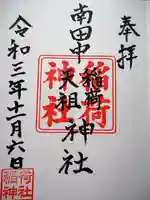 奉拝
南田中
稲荷
天祖神社
令和三年十一月六日
稲荷
神社
稲荷
神社